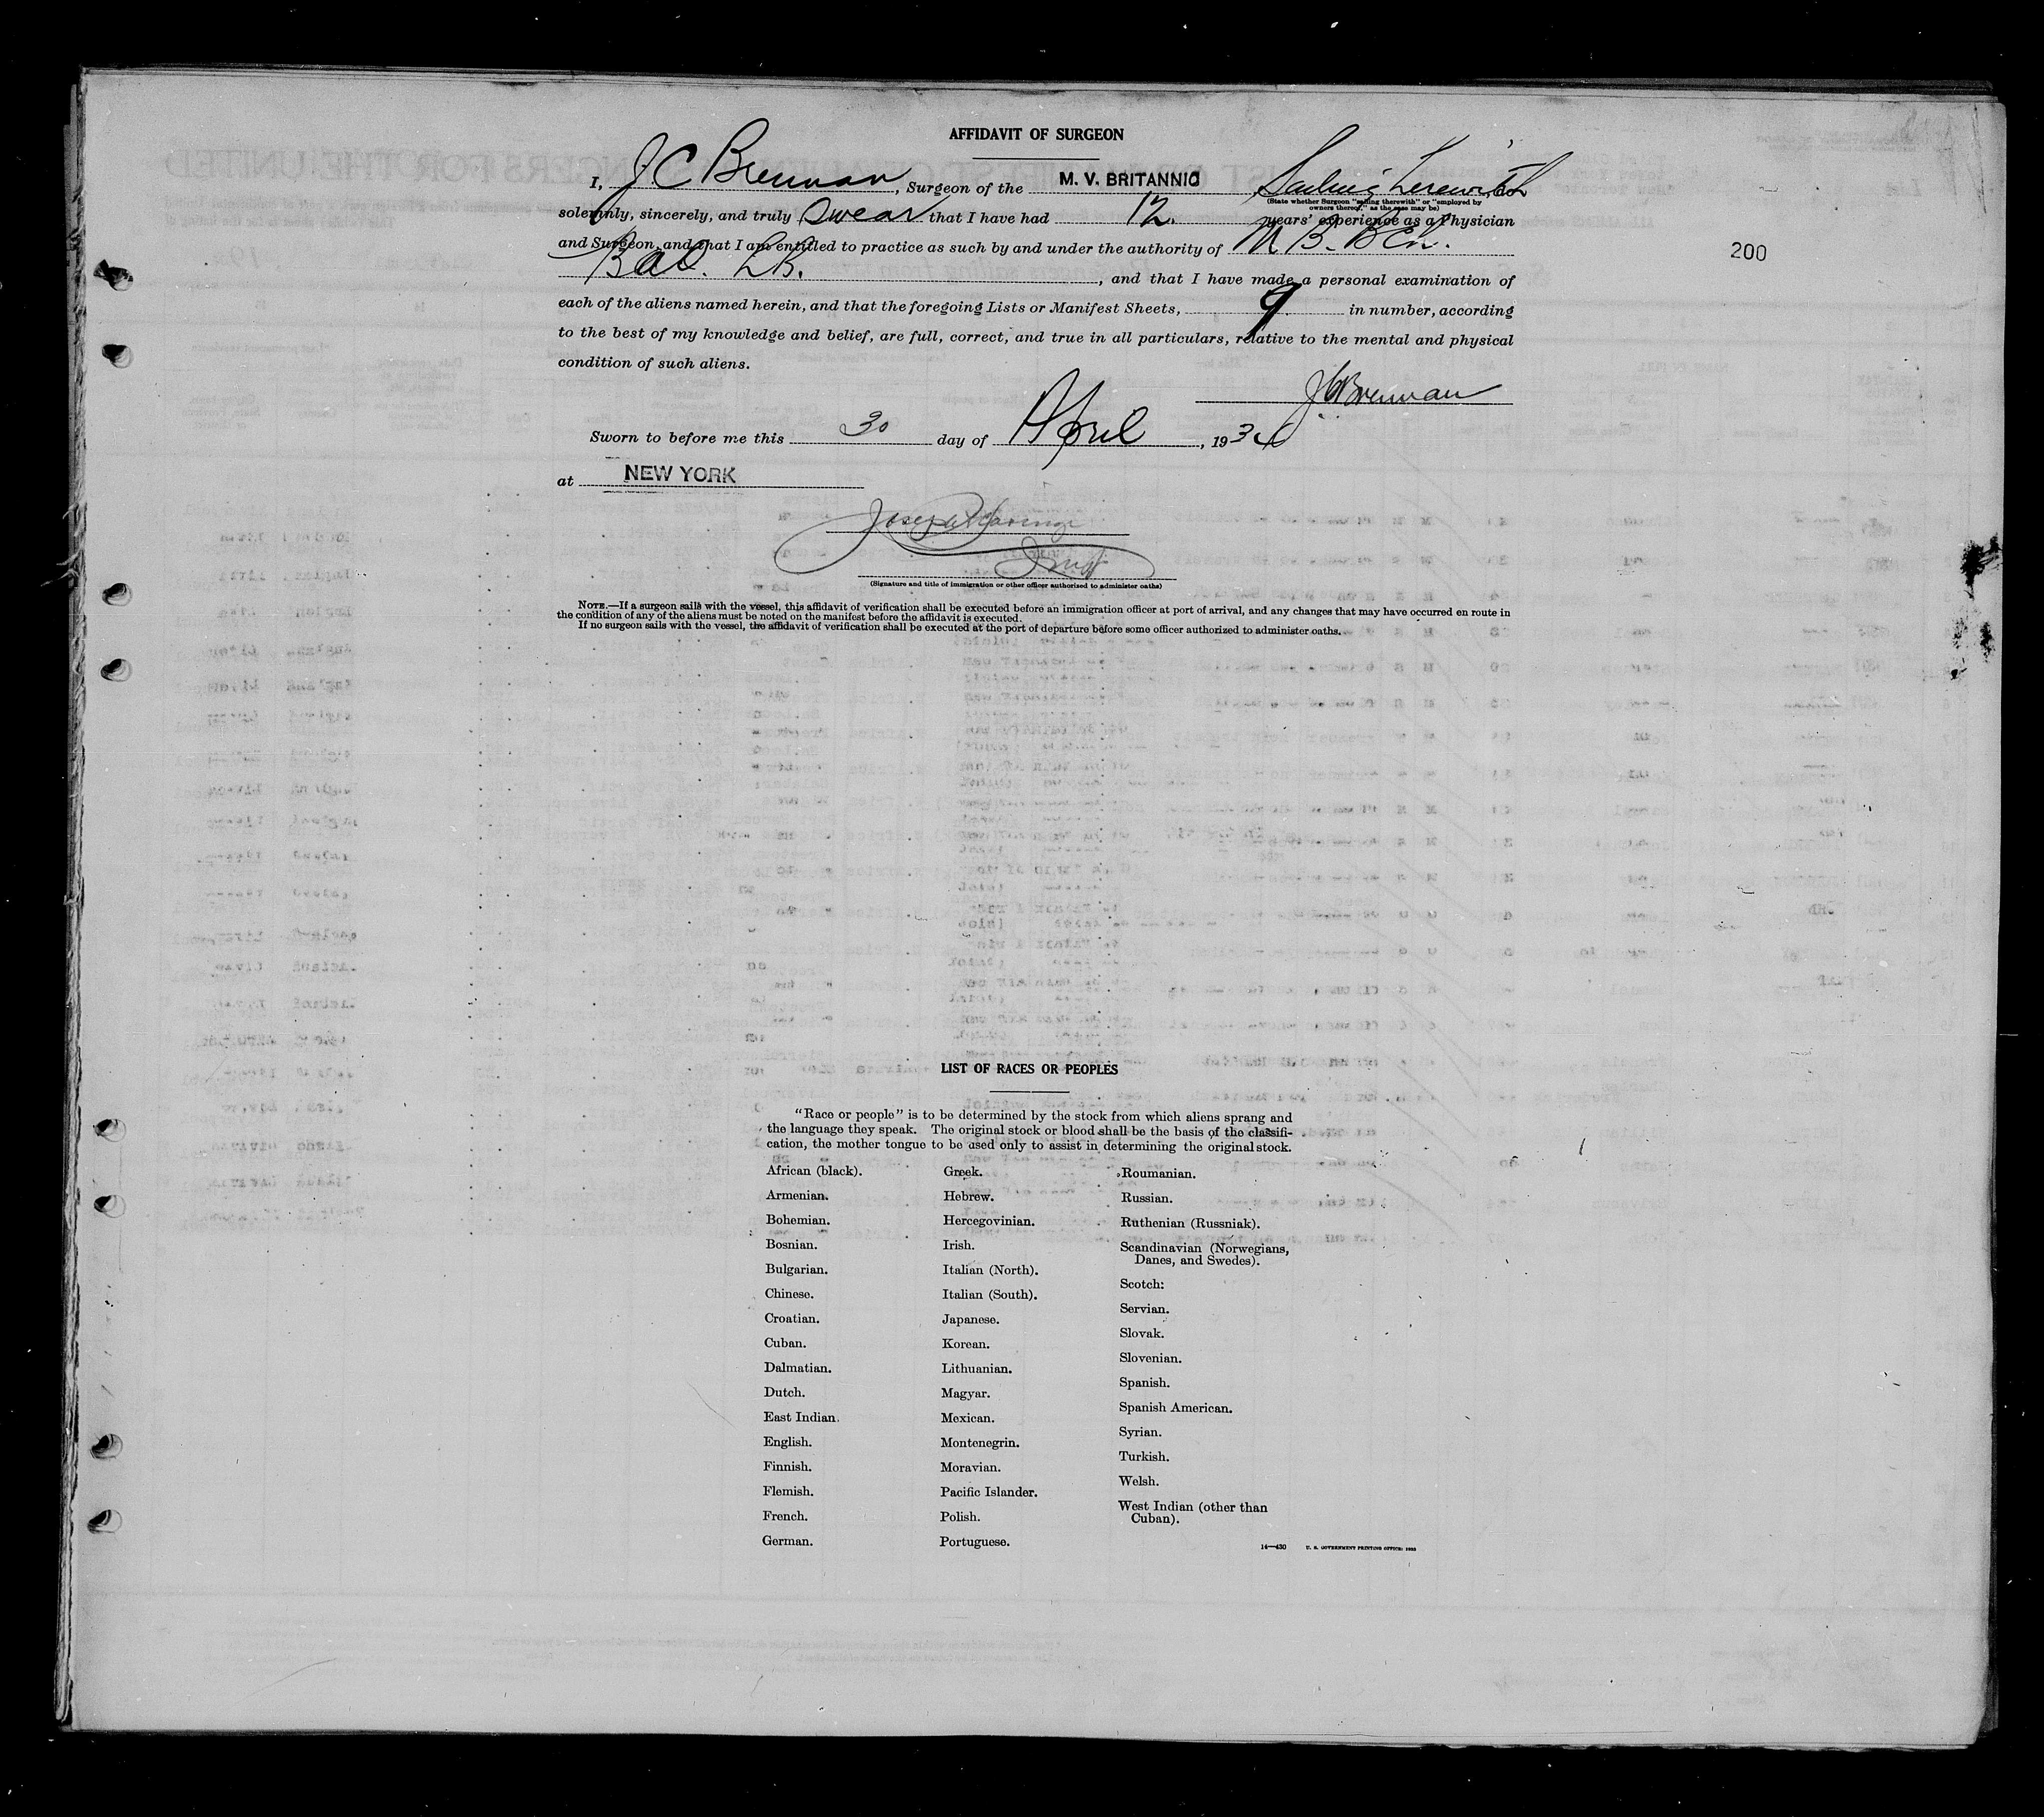 AFFIDAVIT OF SURGEON
I, J C Brennan, Surgeon of the M. V. BRITANNIC Sailing herewith
(State whether Surgeon "sailing therewith" or "employed by
owners thereof," as the case may be)
solemnly, sincerely, and truly swear that I have had 12 years' experience as a Physician
and Surgeon, and that I am entitled to practice as such by and under the authority of M B. BCh.
BAO. , and that I have made a personal examination of
200
each of the aliens named herein, and that the foregoing Lists or Manifest Sheets, 9 in number, according
to the best of my knowledge and belief, are full, correct, and true in all particulars, relative to the mental and physical
condition of such aliens.
J C Brennan
Sworn to before me this 30 day of April, 193
at NEW YORK
Joseph
(Signature and title of immigration or other officer authorized to administer oaths)
NOTE.—If a surgeon sails with the vessel, this affidavit of verification shall be executed before an immigration officer at port of arrival, and any changes that may have occurred en route in
the condition of any of the aliens must be noted on the manifest before the affidavit is executed.
If no surgeon sails with the vessel, the affidavit of verification shall be executed at the port of departure before some officer authorized to administer oaths.
LIST OF RACES OR PEOPLES
"Race or people" is to be determined by the stock from which aliens sprang and
the language they speak. The original stock or blood shall be the basis of the classifi-
cation, the mother tongue to be used only to assist in determining the original stock.
African (black).
Armenian.
Bohemian.
Bosnian.
Bulgarian.
Chinese.
Croatian.
Cuban.
Dalmatian.
Dutch.
East Indian.
English.
Finnish.
Flemish.
French.
German.
Greek.
Hebrew.
Hercegovinian.
Irish.
Italian (North).
Italian (South).
Japanese.
Korean.
Lithuanian.
Magyar.
Mexican.
Montenegrin.
Moravian.
Pacific Islander.
Polish.
Portuguese.
Roumanian.
Russian.
Ruthenian (Russniak).
Scandinavian (Norwegians,
Danes, and Swedes).
Scotch.
Servian.
Slovak.
Slovenian.
Spanish.
Spanish American.
Syrian.
Turkish.
Welsh.
West Indian (other than
Cuban).
14—430 U. S. GOVERNMENT PRINTING OFFICE: